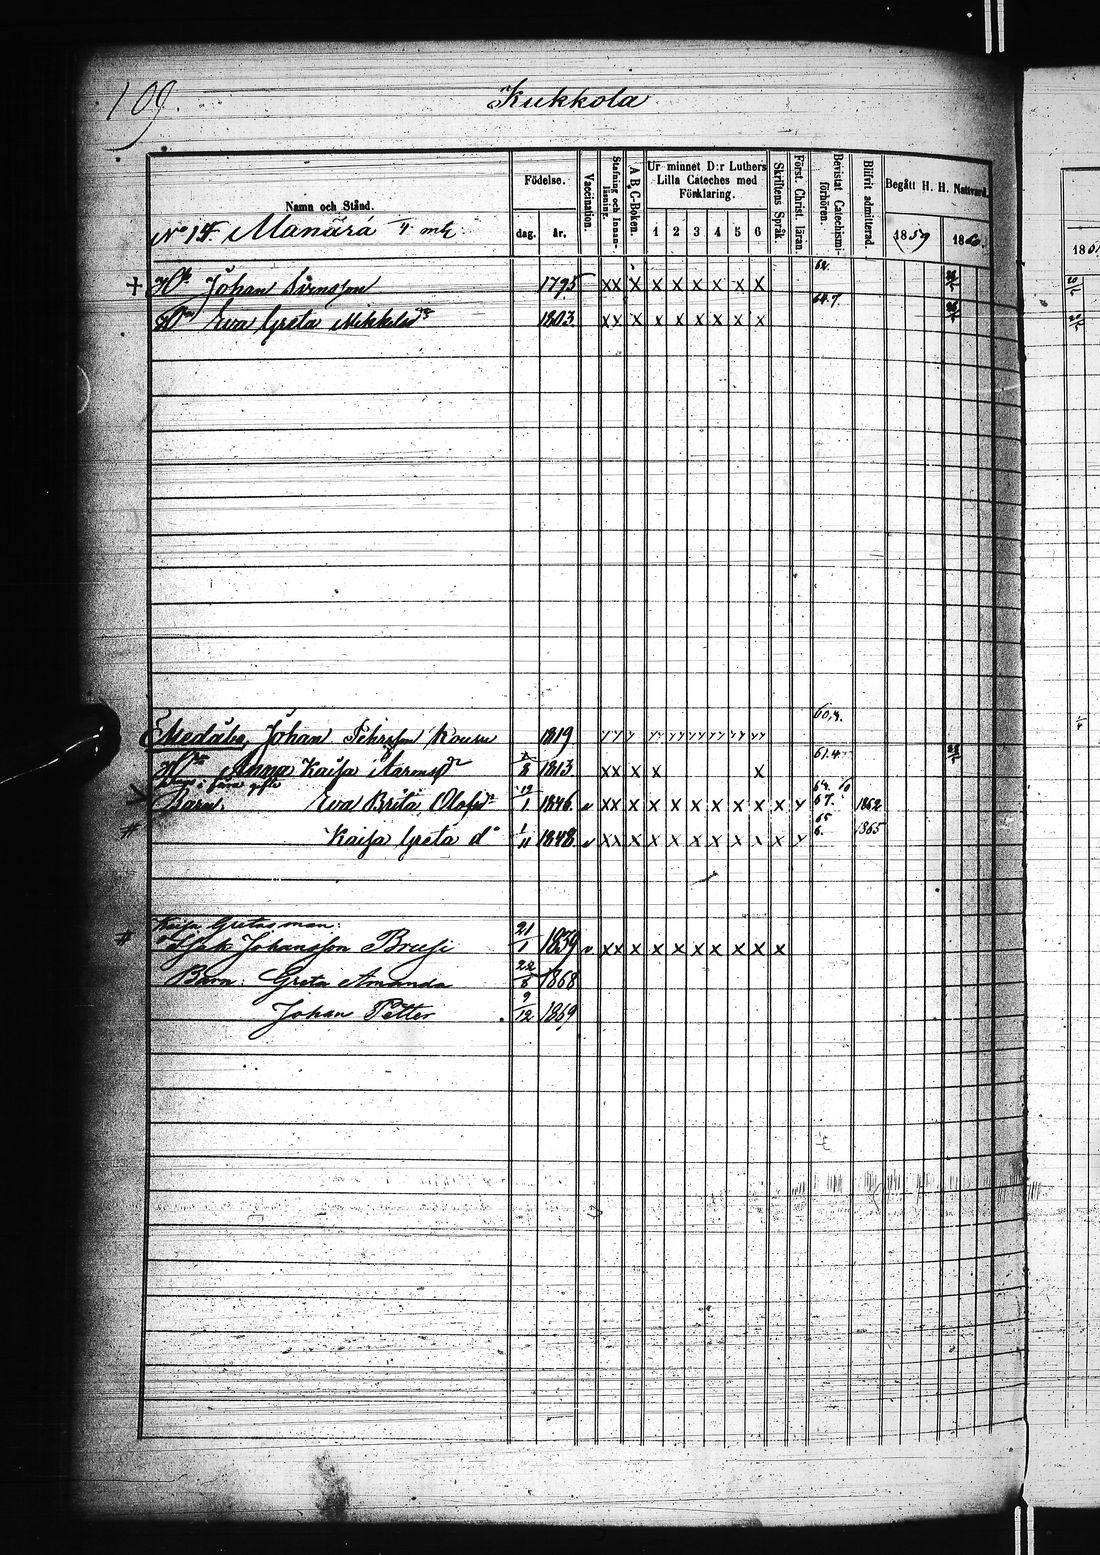 109.
Kukkola
Namn och Stånd.
Födelse.
dag. år.
Vaccination.
Stafning och Innanläsning.
A B C-Boken.
Ur minnet D:r Luthers Lilla Cateches med Förklaring.
1 2 3 4 5 6
Skriftens Språk.
Först. Christ. läran.
Bevistat Catechismiförhören.
Blifvit admitterad.
Begått H. H. Nattvard.
1859 1860
186
Johan Svensson 1795 xx x x x x x x x 62.
Eva Greta Mikkelsdr 1803 xx x x x x x x x 64.7.
Johan Pehrsson 1819 60.
Anna Kaisa 1813 xx x x x 61.4
Barn: Eva Brita Olofsdr 12/1 1846 v xx x x x x x x x x 67. 1862
Kaisa Greta do 1/11 1848 v xx x x x x x x x x 65 6. 1865
Kaisa Gretas man:
Isak Johansson Brusi 21/1 1839 v xx x x x x x x x x
Barn: Greta Amanda 22/8 1868
Johan Petter 9/12 1869